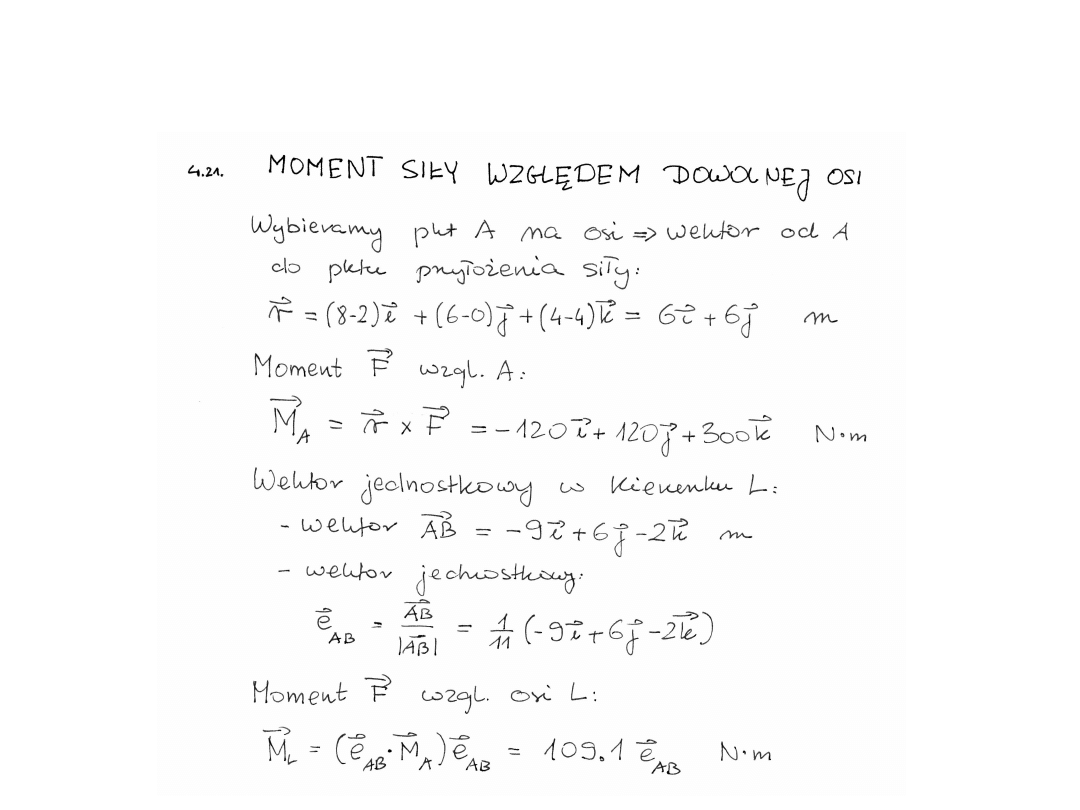 4.21. MOMENT SIŁY WZGLĘDEM DOWOLNEJ OSI
Wybieramy pkt A na osi => wektor od A
do pktu przyłożenia siły:
r⃗ = (8-2)i⃗ + (6-0)j⃗ + (4-4)k⃗ = 6i⃗ + 6j⃗ m
Moment F⃗ wzgl. A:
M⃗_A = r⃗ × F⃗ = -120i⃗ + 120j⃗ + 300k⃗ N·m
Wektor jednostkowy w kierunku L:
- wektor AB⃗ = -9i⃗ + 6j⃗ - 2k⃗ m
- wektor jednostkowy:
e⃗_AB = AB⃗/|AB⃗| = 1/11 (-9i⃗ + 6j⃗ - 2k⃗)
Moment F⃗ wzgl. osi L:
M⃗_L = (e⃗_AB · M⃗_A) e⃗_AB = 109.1 e⃗_AB N·m